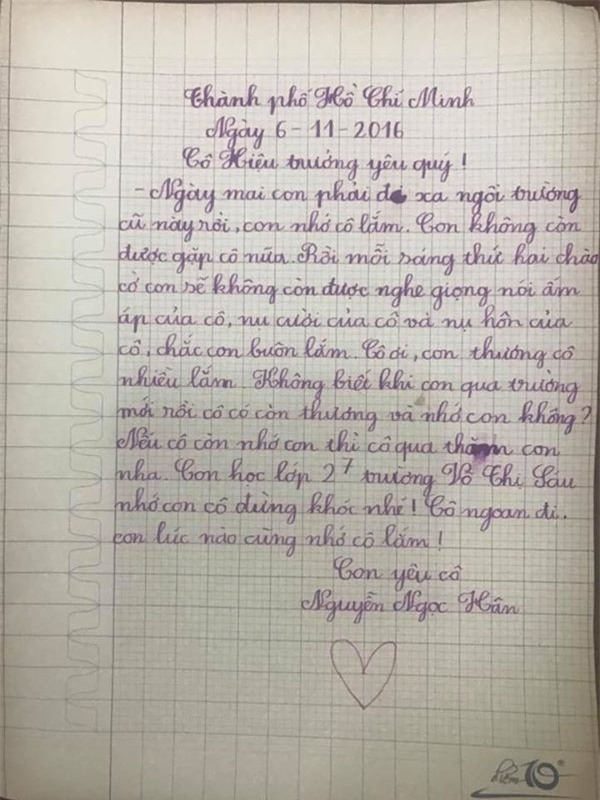 Thành phố Hồ Chí Minh
Ngày 6-11-2016
Cô Hiệu trưởng yêu quý!
- Ngày mai con phải đi xa ngôi trường
cũ này rồi, con nhớ cô lắm. Con không còn
được gặp cô nữa. Rồi mỗi sáng thứ hai chào
cờ con sẽ không còn được nghe giọng nói ấm
áp của cô, nụ cười của cô và nụ hôn của
cô, chắc con buồn lắm. Cô ơi, con thương cô
nhiều lắm. Không biết khi con qua trường
mới rồi cô có còn thương và nhớ con không?
Nếu cô còn nhớ con thì cô qua thăm con
nha. Con học lớp 2 7 trường Võ Thị Sáu
nhớ con cô đừng khóc nhé! Cô ngoan đi.
con lúc nào cũng nhớ cô lắm!
Con yêu cô
Nguyễn Ngọc Hân
điểm 10